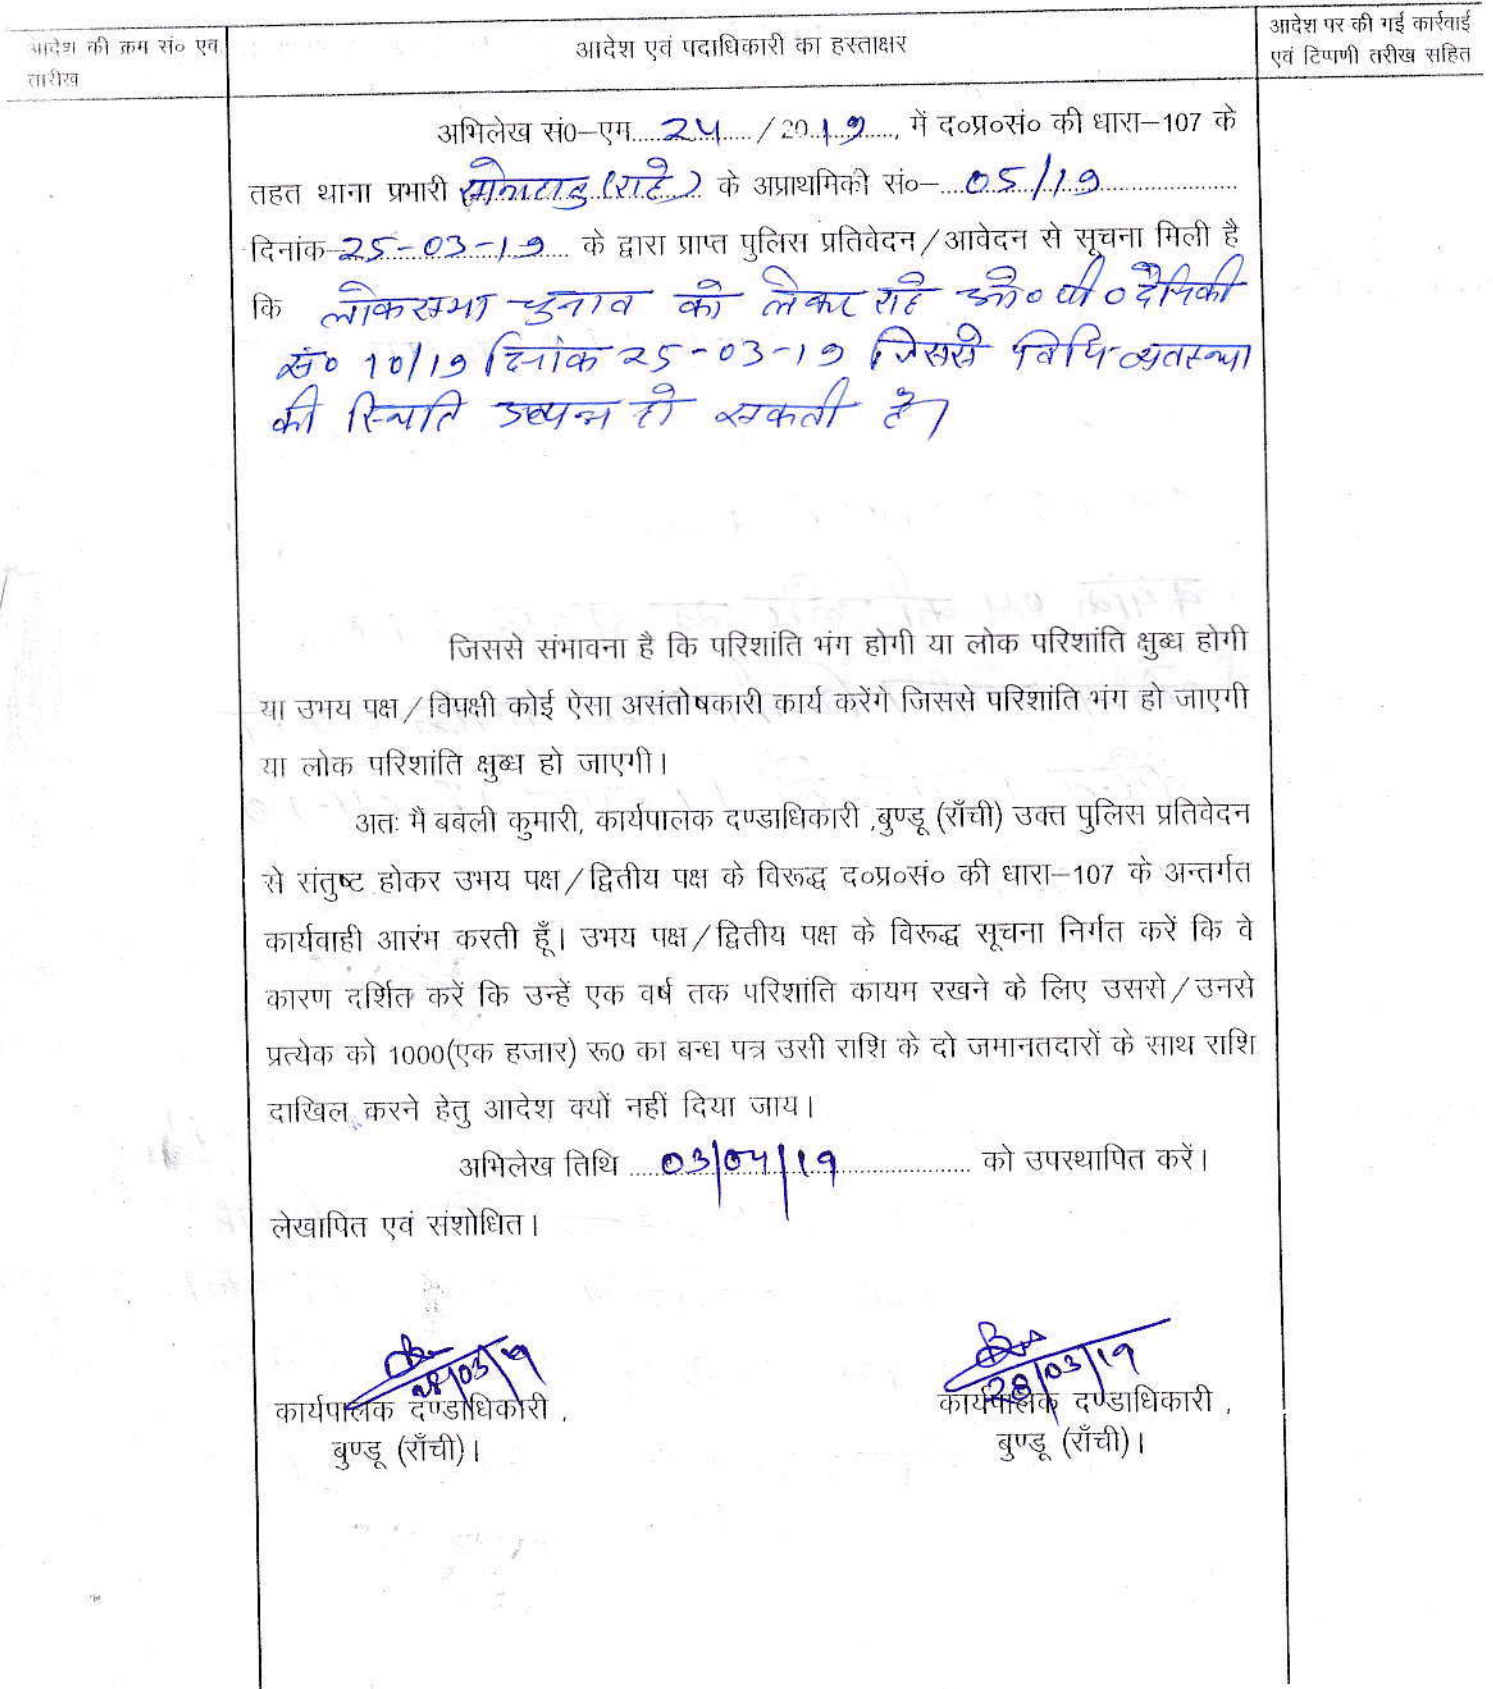 आदेश की क्रम सं० एवं
तारीख
आदेश एवं पदाधिकारी का हस्ताक्षर
आदेश पर की गई कार्रवाई
एवं टिप्पणी तरीख सहित
अभिलेख सं0–एम.....24...../2019....., में द०प्र०सं० की धारा–107 के
तहत थाना प्रभारी सोनाहातु (राहे) के अप्राथमिकी सं०–....05/19..........
दिनांक–25-03-19.... के द्वारा प्राप्त पुलिस प्रतिवेदन/आवेदन से सूचना मिली है
कि लोकसभा चुनाव को लेकर राहे ओ० पी० दैनिकी
सं० 10/19 दिनांक 25-03-19 जिससे विधि-व्यवस्था
की स्थिति उत्पन्न हो सकती है।
जिससे संभावना है कि परिशांति भंग होगी या लोक परिशांति क्षुब्ध होगी
या उभय पक्ष/विपक्षी कोई ऐसा असंतोषकारी कार्य करेंगे जिससे परिशांति भंग हो जाएगी
या लोक परिशांति क्षुब्ध हो जाएगी।
अतः मै बबली कुमारी, कार्यपालक दण्डाधिकारी ,बुण्डू (राँची) उक्त पुलिस प्रतिवेदन
से संतुष्ट होकर उभय पक्ष/द्वितीय पक्ष के विरूद्ध द०प्र०सं० की धारा–107 के अन्तर्गत
कार्यवाही आरंभ करती हूँ। उभय पक्ष/द्वितीय पक्ष के विरूद्ध सूचना निर्गत करें कि वे
कारण दर्शित करें कि उन्हें एक वर्ष तक परिशांति कायम रखने के लिए उससे/उनसे
प्रत्येक को 1000(एक हजार) रू0 का बन्ध पत्र उसी राशि के दो जमानतदारों के साथ राशि
दाखिल करने हेतु आदेश क्यों नहीं दिया जाय।
अभिलेख तिथि .....03/04/19................ को उपस्थापित करें।
लेखापित एवं संशोधित।
28/03/19
28/03/19
कार्यपालक दण्डाधिकारी,
कार्यपालक दण्डाधिकारी,
बुण्डू (राँची)।
बुण्डू (राँची)।